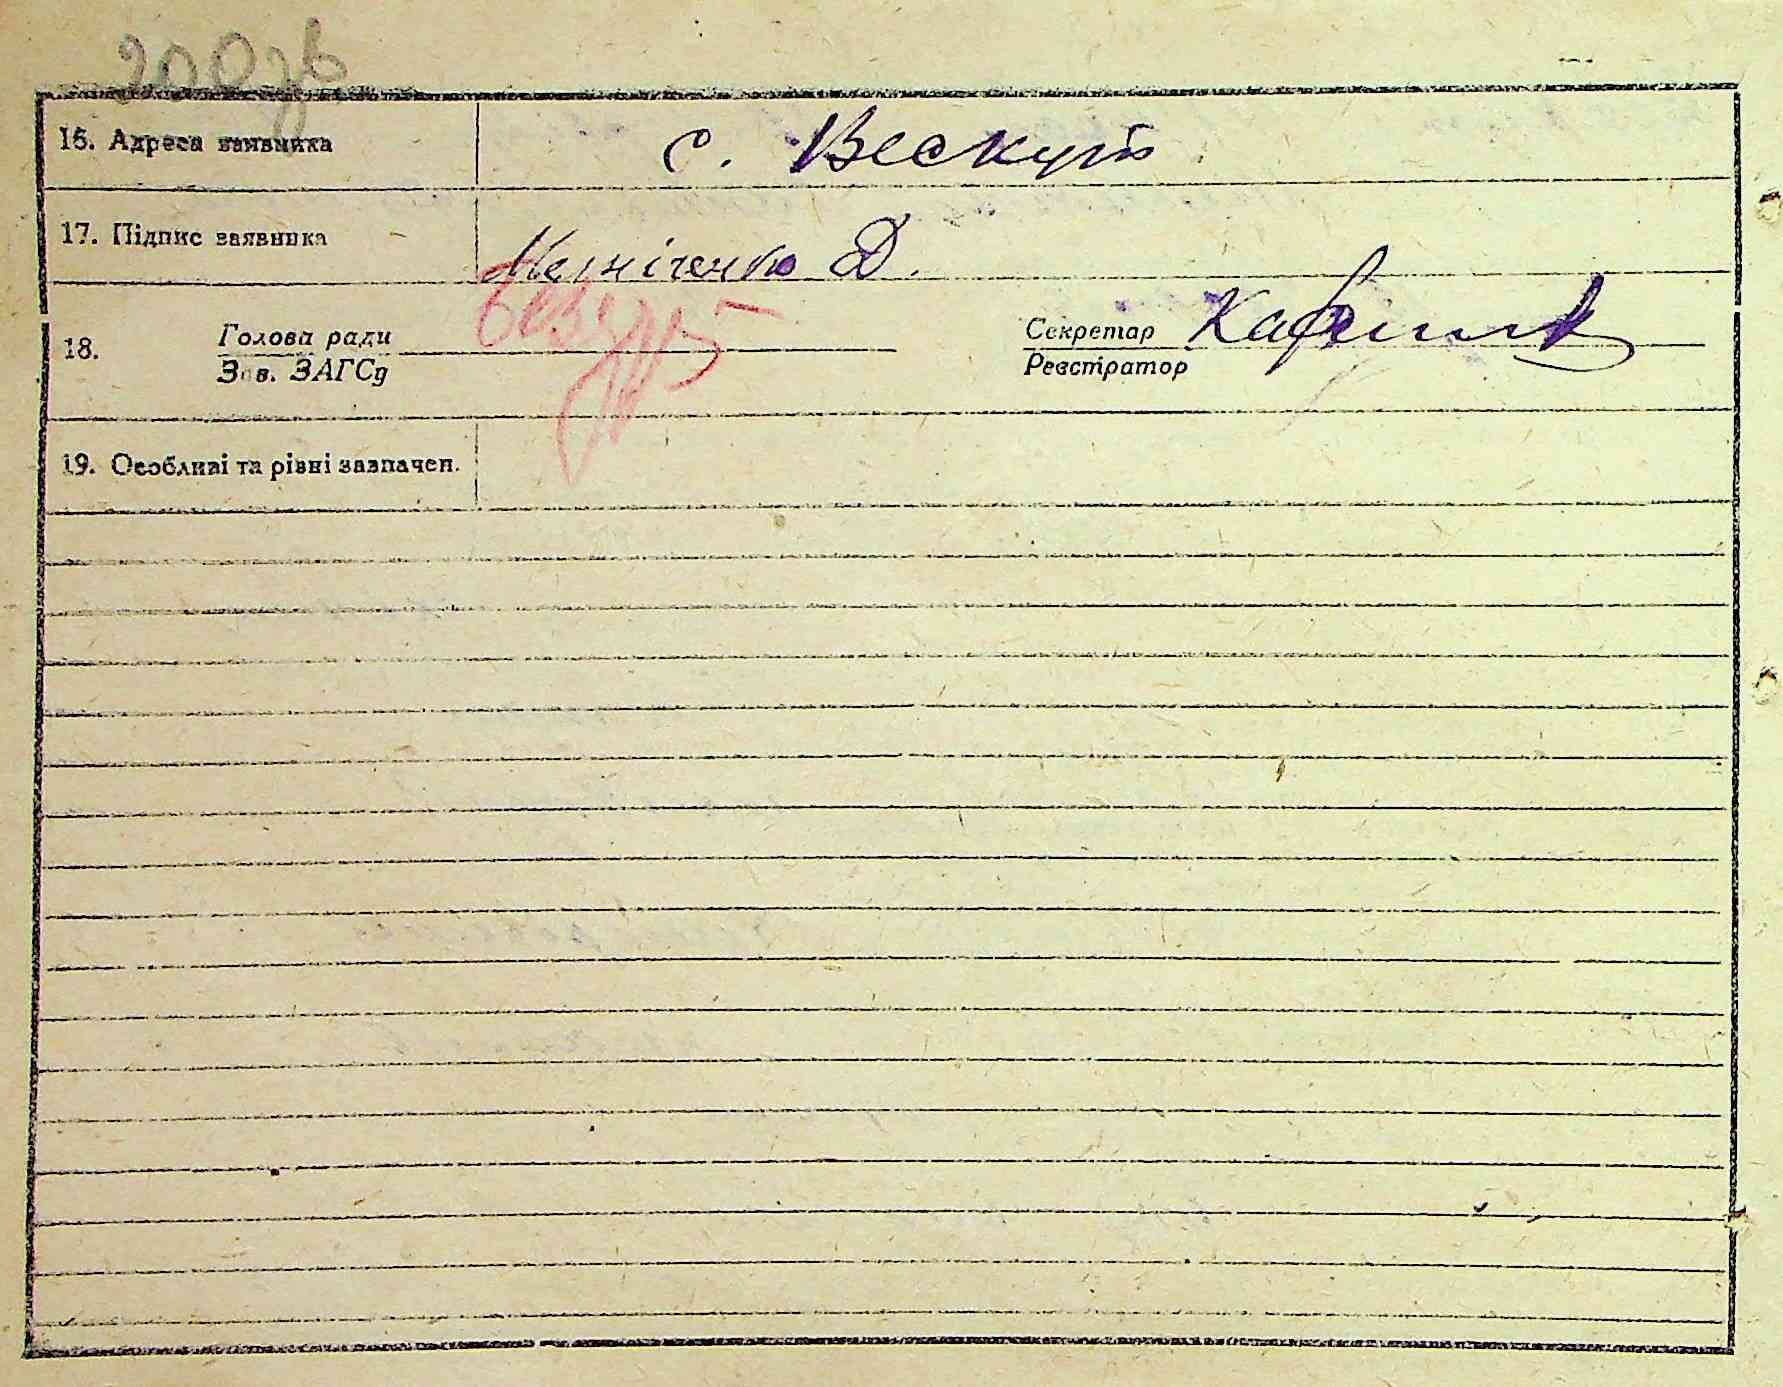 200зв
16. Адреса заявника с. Вескути
17. Підпис заявника Мезніченко Д.
18. Голова ради
Зав. ЗАГСу
Секретар
Реєстратор
19. Особливі та рівні зазначен.